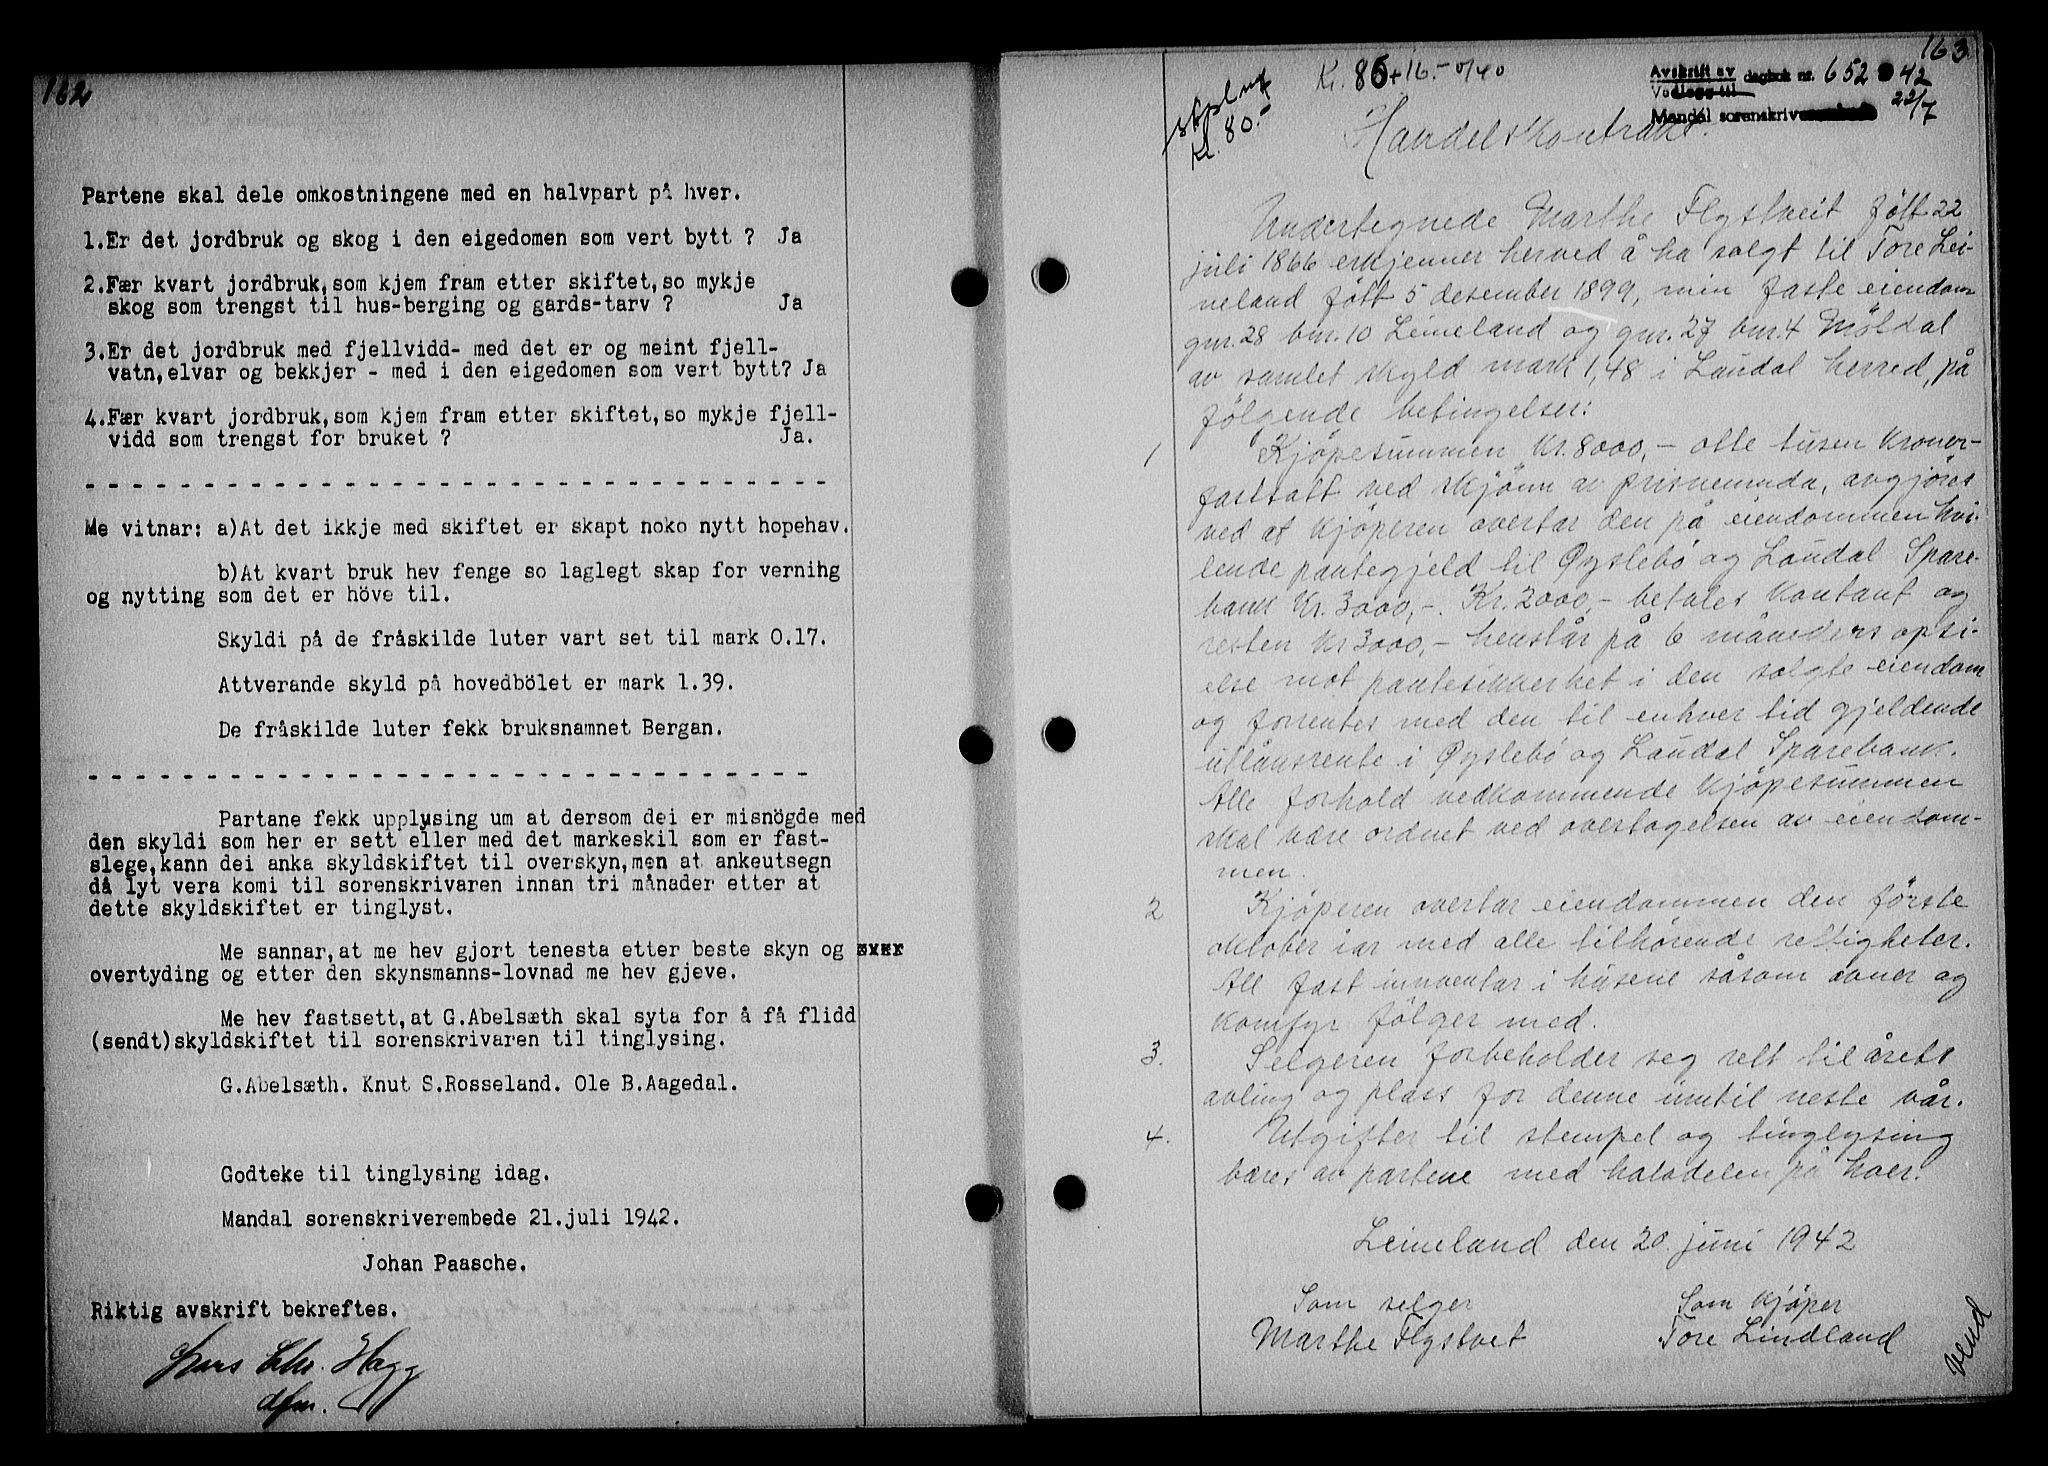 162
Partene skal dele omkostningene med en halvpart på hver.
1.Er det jordbruk og skog i den eigedomen som vert bytt ? Ja
2.Fær kvart jordbruk,som kjem fram etter skiftet,so mykje
skog som trengst til hus-berging og gards-tarv ? Ja
3.Er det jordbruk med fjellvidd- med det er og meint fjell-
vatn,elvar og bekkjer - med i den eigedomen som vert bytt? Ja
4.Fær kvart jordbruk,som kjem fram etter skiftet,so mykje fjell-
vidd som trengst for bruket ? Ja.
Me vitnar: a)At det ikkje med skiftet er skapt noko nytt hopehav.
b)At kvart bruk hev fenge so laglegt skap for vernihg
og nytting som det er höve til.
Skyldi på de fråskilde luter vart set til mark 0.17.
Attverande skyld på hovedbölet er mark 1.39.
De fråskilde luter fekk bruksnamnet Bergan.
Partane fekk upplysing um at dersom dei er misnögde med
den skyldi som her er sett eller med det markeskil som er fast-
slege,kann dei anka skyldskiftet til overskyn,men at ankeutsegn
då lyt vera komi til sorenskrivaren innan tri månader etter at
dette skyldskiftet er tinglyst.
Me sannar,at me hev gjort tenesta etter beste skyn og
overtyding og etter den skynsmanns-lovnad me hev gjeve.
Me hev fastsett,at G.Abelsæth skal syta for å få flidd
(sendt)skyldskiftet til sorenskrivaren til tinglysing.
G.Abelsæth. Knut S.Rosseland. Ole B.Aagedal.
Godteke til tinglysing idag.
Mandal sorenskriverembede 21.juli 1942.
Johan Paasche.
Riktig avskrift bekreftes.
Chr. Hagg
dfm.
163
Kr. 86+16.- 0/40
Avskrift av dagbok nr. 652 42
22/7
Mandal sorenskriver
Kr. 80.-
Handelskontrakt.
Undertegnede Marthe Flystveit född 22
juli 1866 erkjenner herved å ha solgt til Tore Lei-
neland født 5 desember 1899, min faste eiendom
gnr. 28 bnr. 10 Leineland og gnr. 27 bnr. 4 Möldal
av samlet skyld mark 1,48 i Laudal herred, på
fölgende betingelser:
1 Kjöpesummen Kr. 8000,- otte tusen kroner-
fastsatt ved skjönn av prisnemnda, avgjöres
ved at kjöperen overtar den på eiendommen hvi-
lende pantegjeld til Øyslebö og Laudal Spare-
bank Kr. 3000,-. Kr. 2000,- betales kontant og
resten Kr 3000,- henstår på 6 måneders opsi-
else mot pantesikkerhet i den solgte eiendom
og forrentes med den til enhver tid gjeldende
utlånsrente i Øyslebö og Laudal Sparebank.
Alle forhold vedkommende kjöpesummen
skal være ordnet ved overtagelsen av eiendom-
men.
2 Kjöperen overtar eiendommen den förste
oktober iår med alle tilhörende rettigheter.
All fast innventar i husene såsom ovner og
komfyr fölger med.
3. Selgeren forbeholder seg rett til årets
avling og plass for denne inntil neste vår.
4. Utgifter til stempel og tinglysing
bæres av partene med halvdelen på hver.
Leineland den 20. juni 1942
Som selger Som kjöper
Marthe Flystvet Tore Lindland
Vend